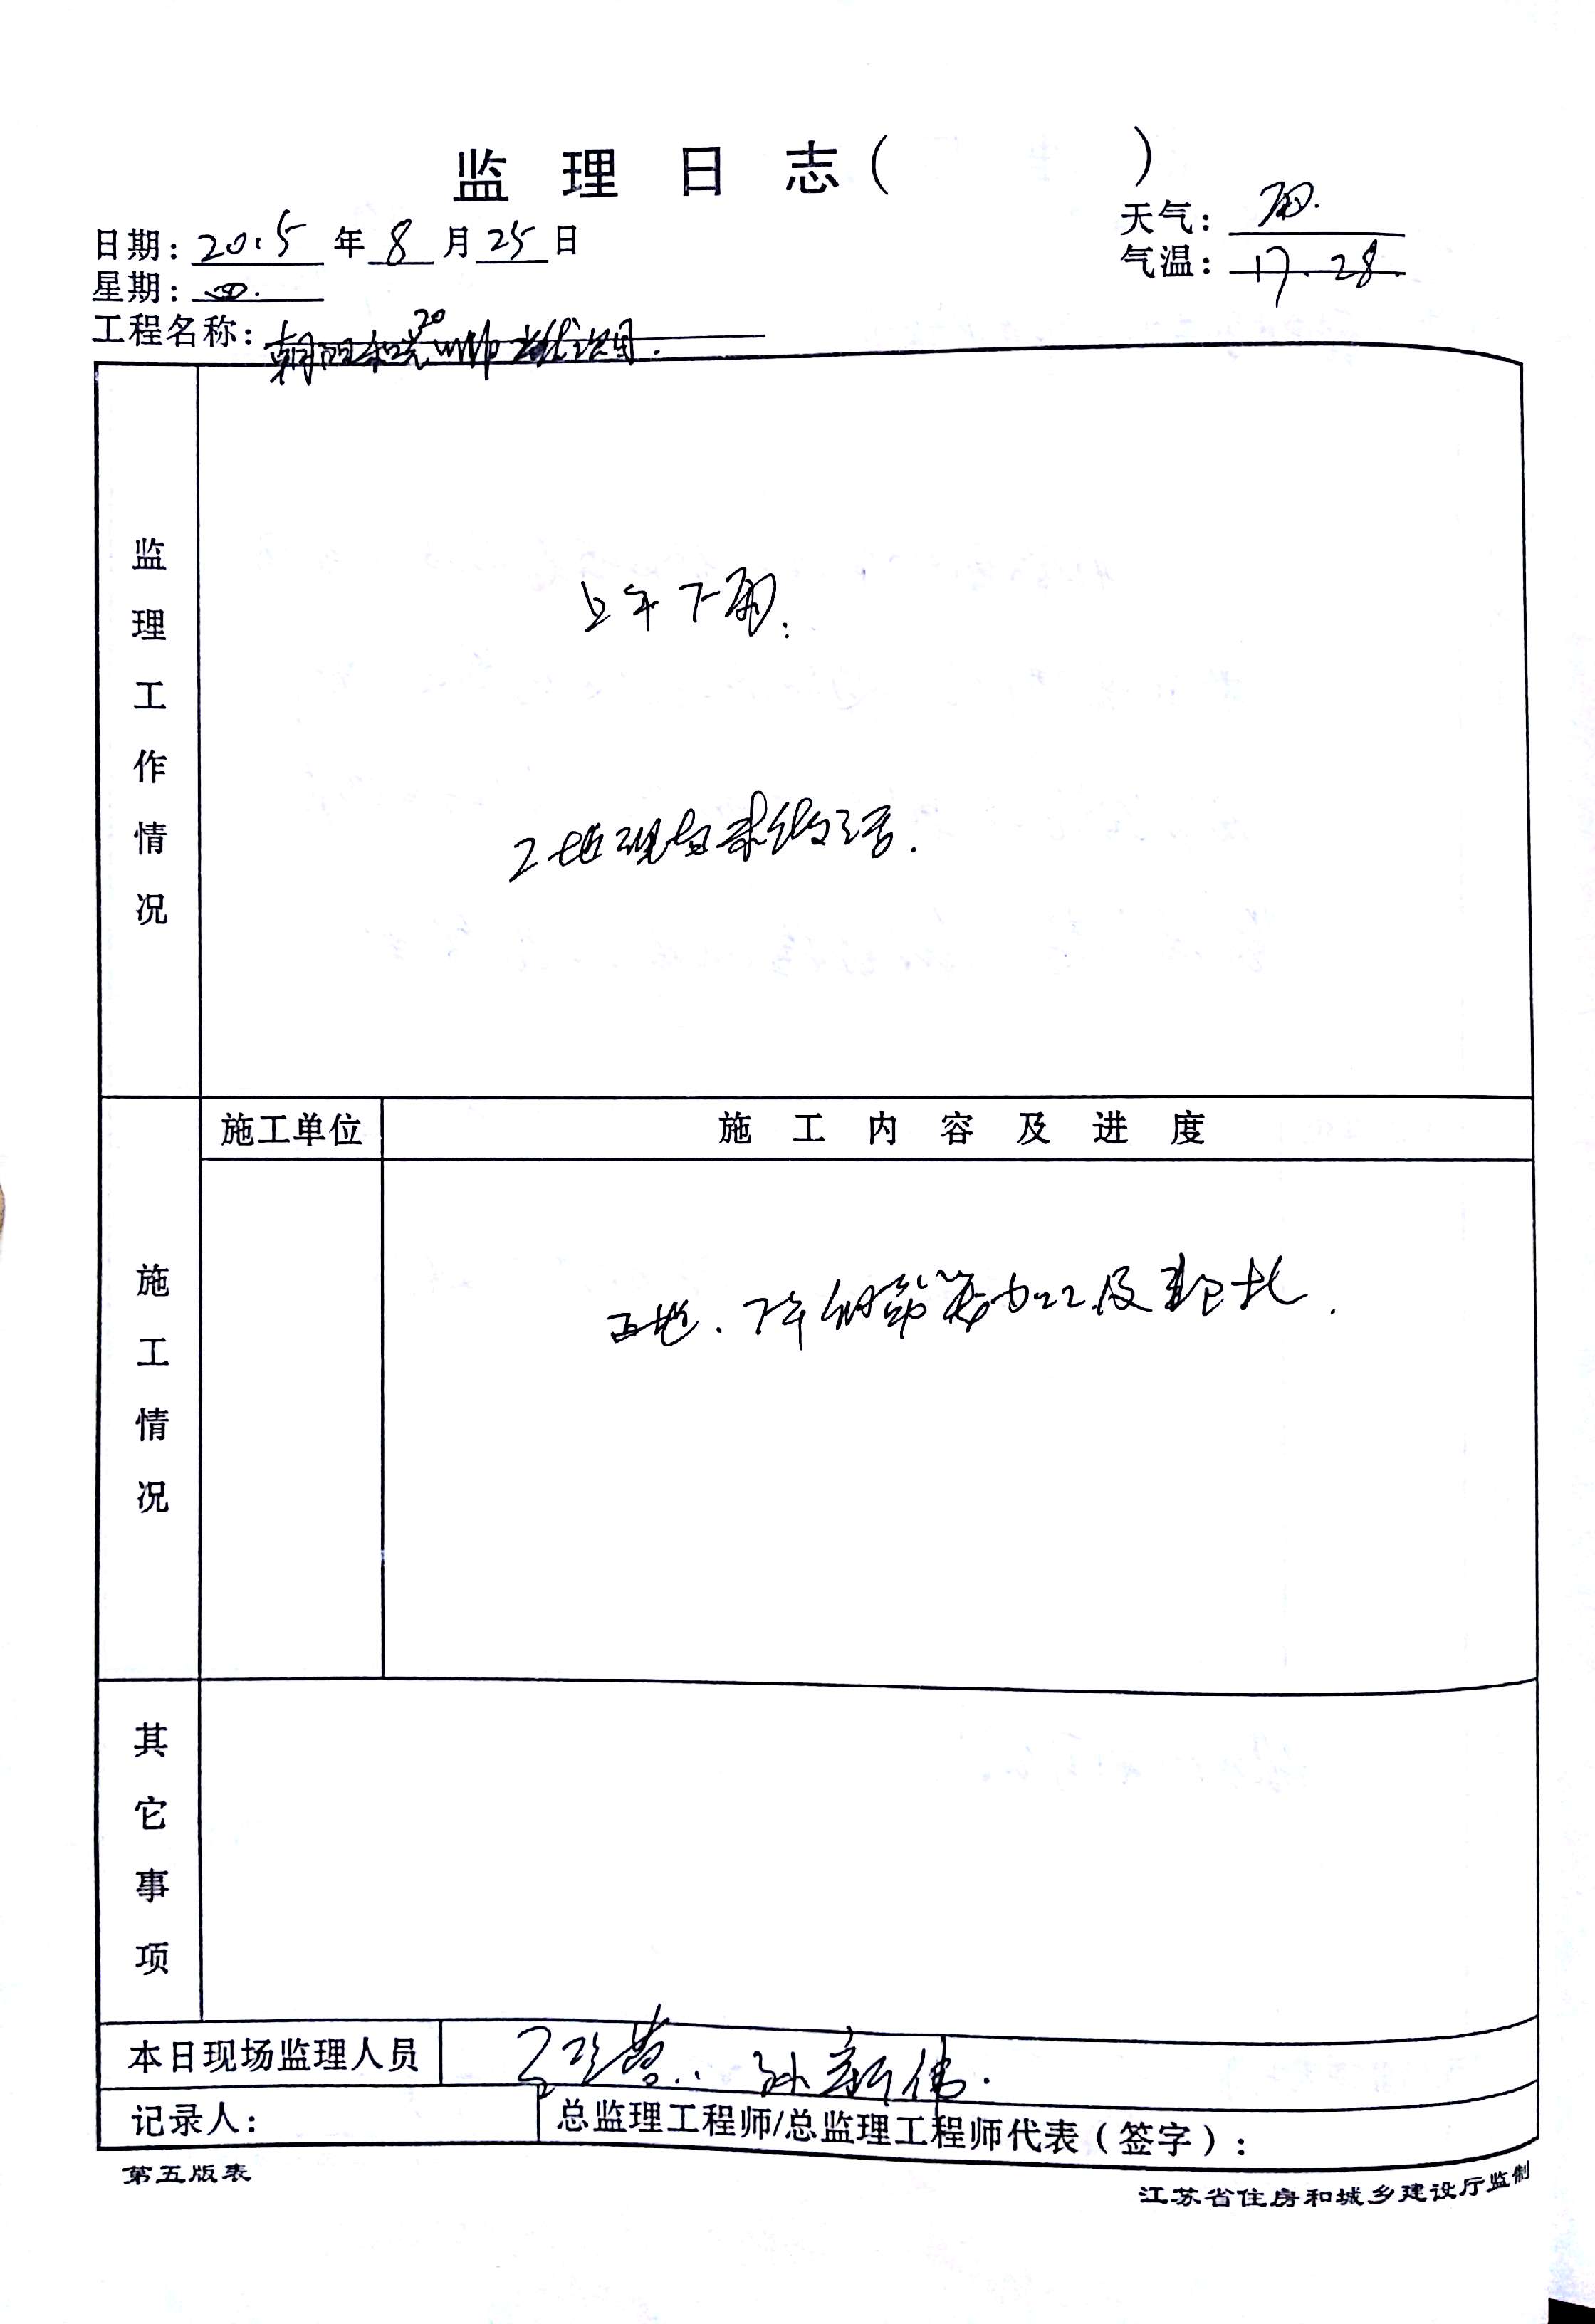 监理日志（　　　）
日期：2015年8月25日
天气：雨.
星期：四.
气温：17.28.
工程名称：朝阳和光20
监理工作情况
上午下雨.
工地现场未做活.
施工单位
施工内容及进度
施工情况
工地.下午钢筋笼加工及
其它事项
本日现场监理人员
孙新伟.
记录人：
总监理工程师/总监理工程师代表（签字）：
第五版表
江苏省住房和城乡建设厅监制